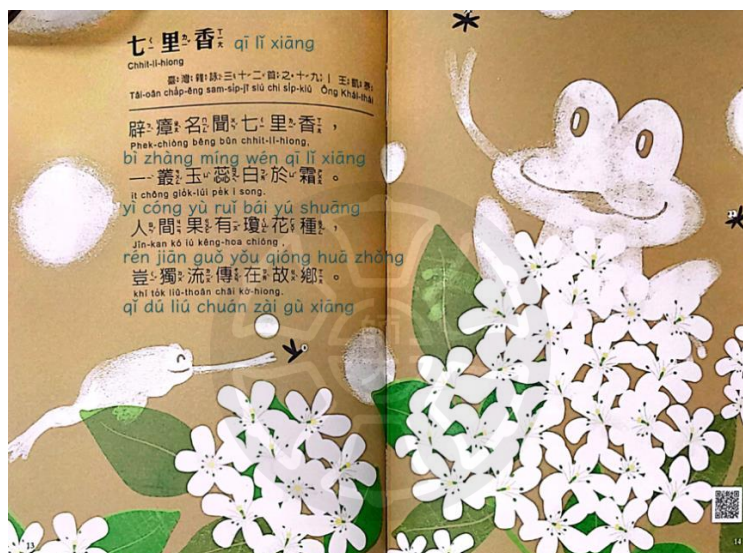 七里香 qī lǐ xiāng
Chhit-lí-hiong
臺灣雜詠三十二首之十九｜王凱泰
Tâi-oân cha̍p-êng sam-si̍p-jī siú chi si̍p-kiú Ông Khái-thài
辟瘴名聞七里香，
Phek-chiòng bêng bûn chhit-lí-hiong,
bì zhàng míng wén qī lǐ xiāng
一叢玉蕊白於霜。
it chông gio̍k-lúi pe̍k i song.
yì cóng yù ruǐ bái yú shuāng
人間果有瓊花種，
Jîn-kan kó iú kêng-hoa chióng,
rén jiān guǒ yǒu qióng huā zhǒng
豈獨流傳在故鄉。
khí to̍k liû-thoân chāi kò-hiong.
qǐ dú liú chuán zài gù xiāng
13
14